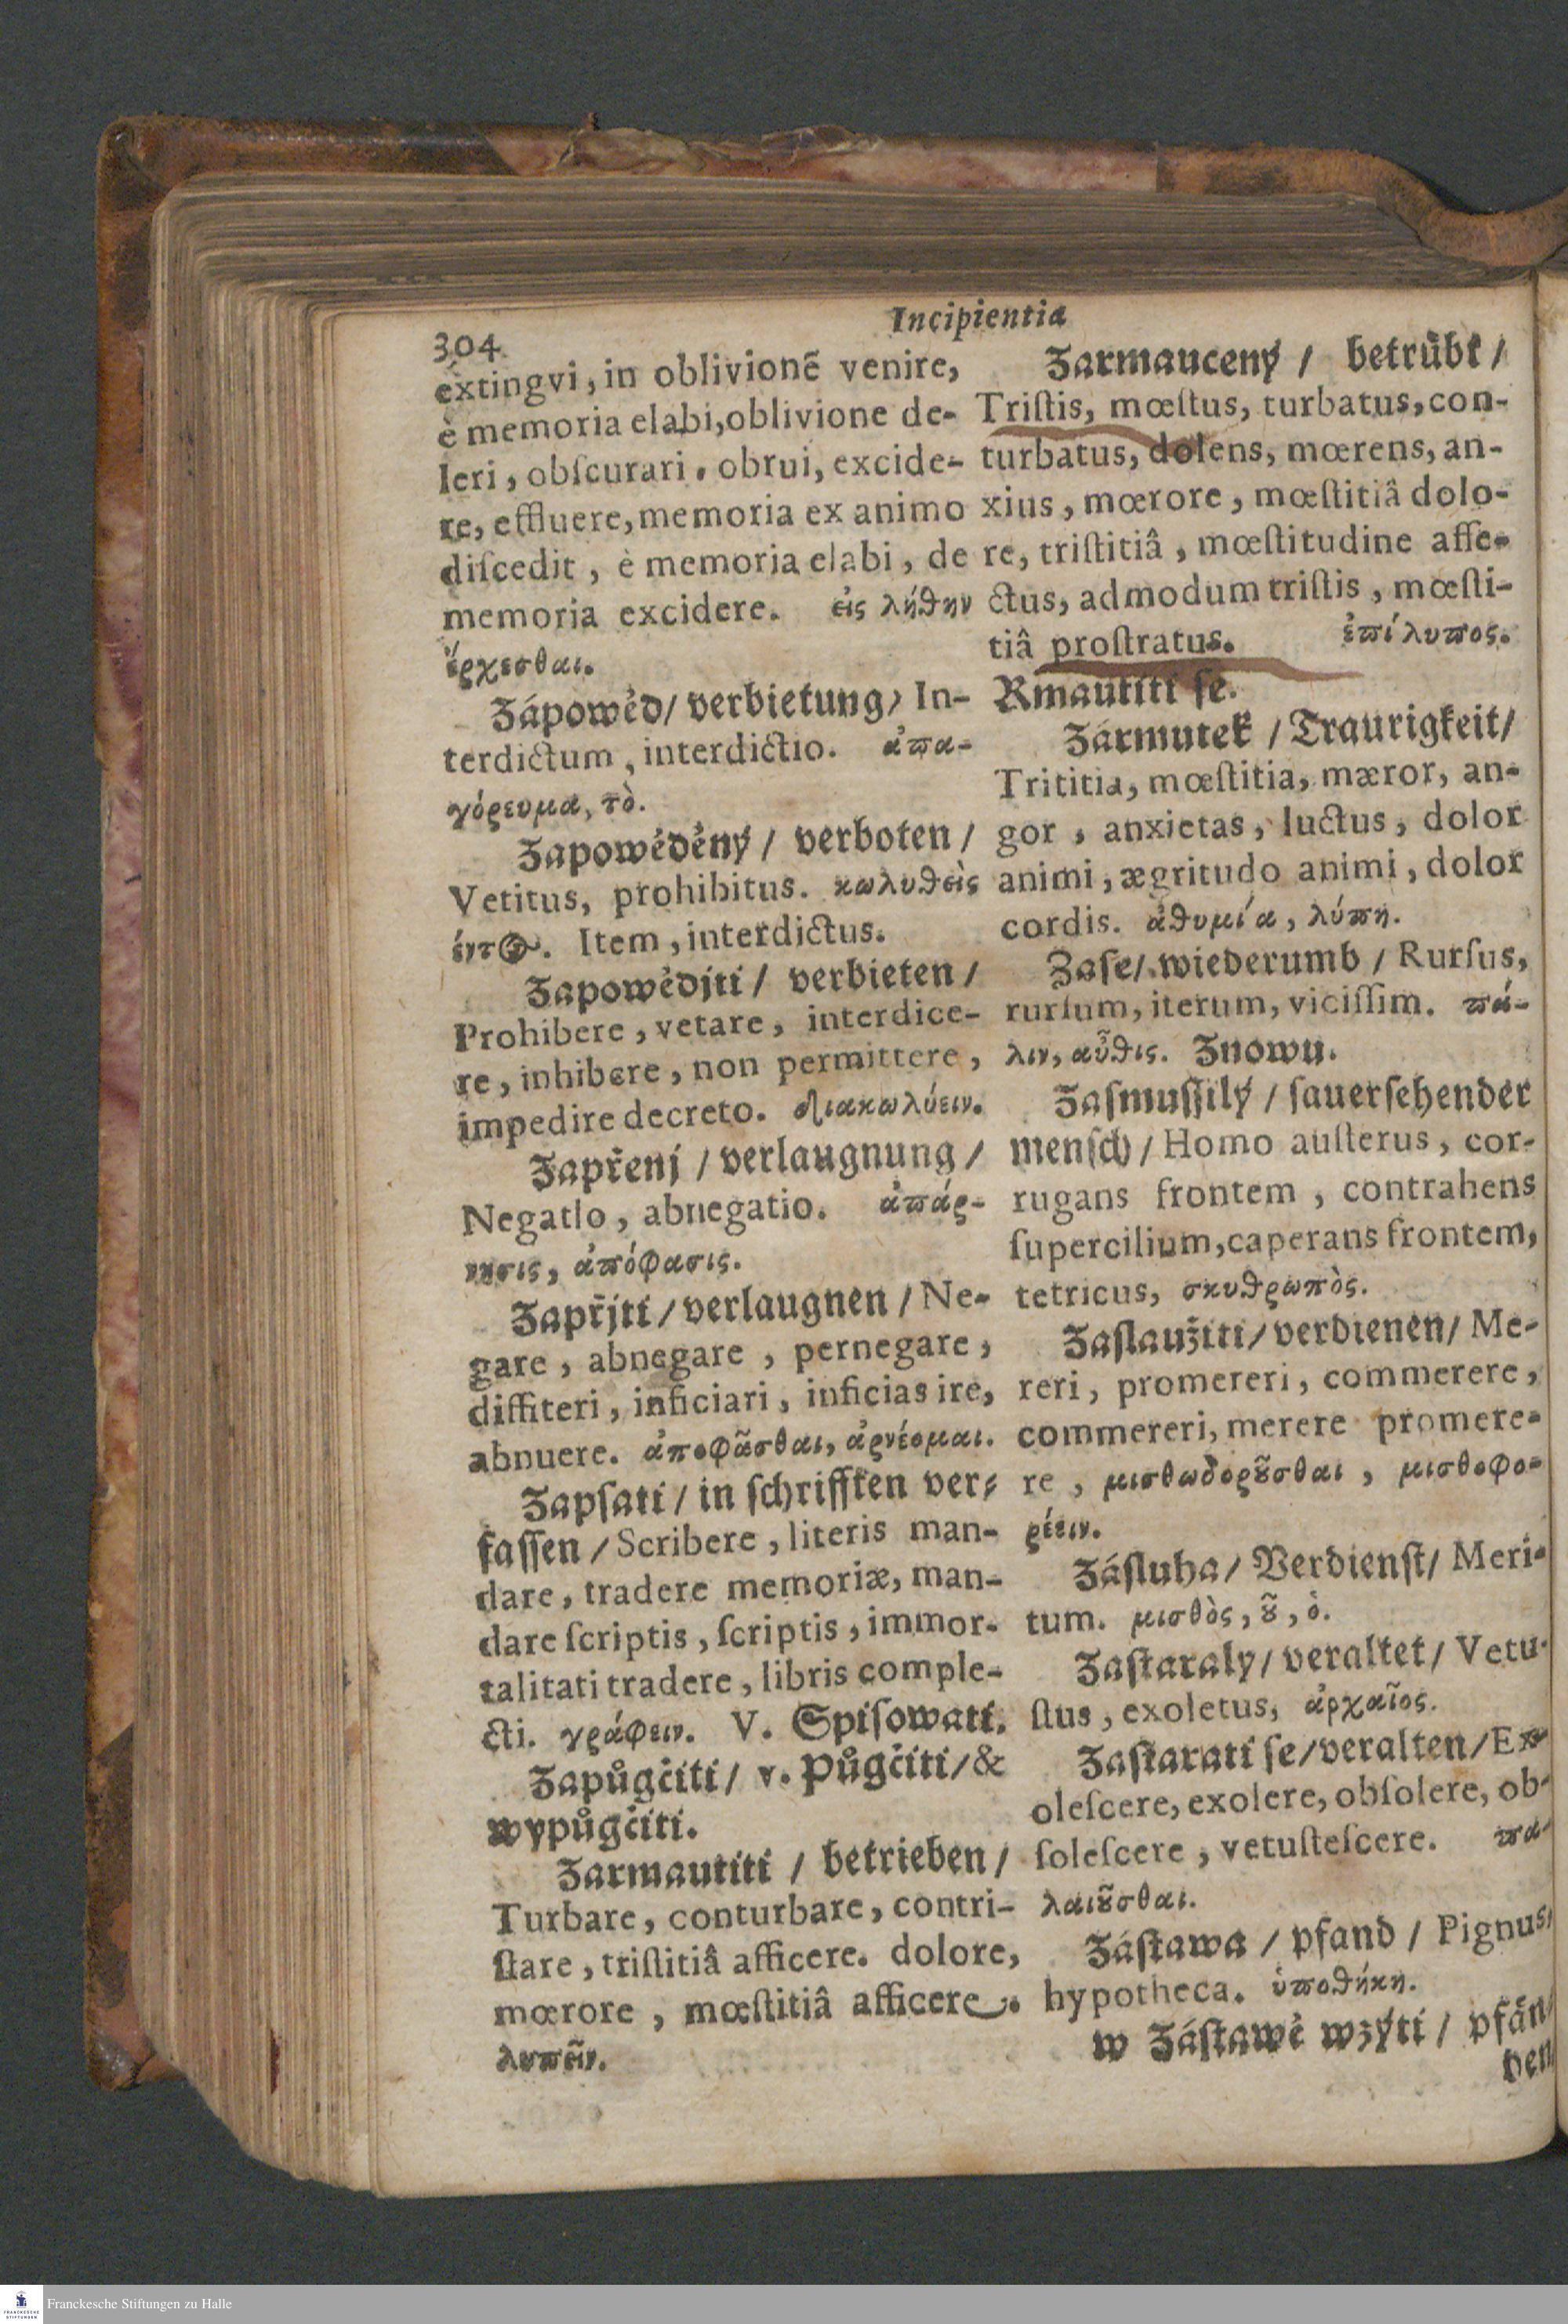 304
Incipientia
extingvi, in oblivionẽ venire,
è memoria elabi, oblivione de-
leri, obſcurari, obrui, excide-
re, effluere, memoria ex animo
diſcedit, è memoria elabi, de
memoria excidere. εἰς λήθην
ἔρχεσθαι.
Zápowěd/ verbietung/ In-
terdictum, interdictio. ἀπα-
γόρευμα, τὸ.
Zapowěděný/ verboten/
Vetitus, prohibitus. κωλυθεὶς
έντος. Item, interdictus.
Zapowědjti/ verbieten/
Prohibere, vetare, interdice-
re, inhibere, non permittere,
impedire decreto. διακωλύειν.
Zapřenj/ verlaugnung/
Negatio, abnegatio. ἀπάρ-
νησις, ἀπόφασις.
Zapřjti/ verlaugnen/ Ne-
gare, abnegare, pernegare,
diffiteri, inficiari, inficias ire,
abnuere. ἀποφᾶσθαι, ἀρνέομαι.
Zapſati/ in ſchrifften ver-
faſſen/ Scribere, literis man-
dare, tradere memoriæ, man-
dare ſcriptis, ſcriptis, immor-
talitati tradere, libris comple-
cti. γράφειν. V. Spiſowati.
Zapůgčiti/ v. Půgčiti/ &
wypůgčiti.
Zarmautiti/ betrieben/
Turbare, conturbare, contri-
ſtare, triſtitiâ afficere. dolore,
mœrore, mœſtitiâ afficere.
λυπεῖν.
Zarmaucený/ betrübt/
Triſtis, mœſtus, turbatus, con-
turbatus, dolens, mœrens, an-
xius, mœrore, mœſtitiâ dolo-
re, triſtitiâ, mœſtitudine affe-
ctus, admodum triſtis, mœſti-
tiâ proſtratus. ἐπίλυπος.
Rmautiti ſe.
Zármutek/ Traurigkeit/
Trititia, mœſtitia, mæror, an-
gor, anxietas, luctus, dolor
animi, ægritudo animi, dolor
cordis. ἀθυμία, λύπη.
Zaſe/ wiederumb/ Rurſus,
rurſum, iterum, viciſſim. πά-
λιν, αὖθις. Znowu.
Zaſmuſſilý/ ſauerſehender
menſch/ Homo auſterus, cor-
rugans frontem, contrahens
ſupercilium, caperans frontem,
tetricus, σκυθρωπὸς.
Zaſlaužiti/ verdienen/ Me-
reri, promereri, commerere,
commereri, merere promere-
re, μισθωδορȣ͂σθαι, μισθοφο-
ρέειν.
Záſluha/ Verdienſt/ Meri-
tum. μισθὸς, ȣ͂, ὁ.
Zaſtaraly/ veraltet/ Vetu-
ſtus, exoletus, ἀρχαῖος.
Zaſtarati ſe/ veralten/ Ex-
oleſcere, exolere, obſolere, ob-
ſoleſcere, vetuſteſcere. πα-
λαιȣ͂σθαι.
Záſtawa/ pfand/ Pignus,
hypotheca. ὑποθήκη.
w Záſtawě wzýti/ pfän-
den
Franckesche Stiftungen zu Halle
FRANCKESCHE
STIFTUNGEN